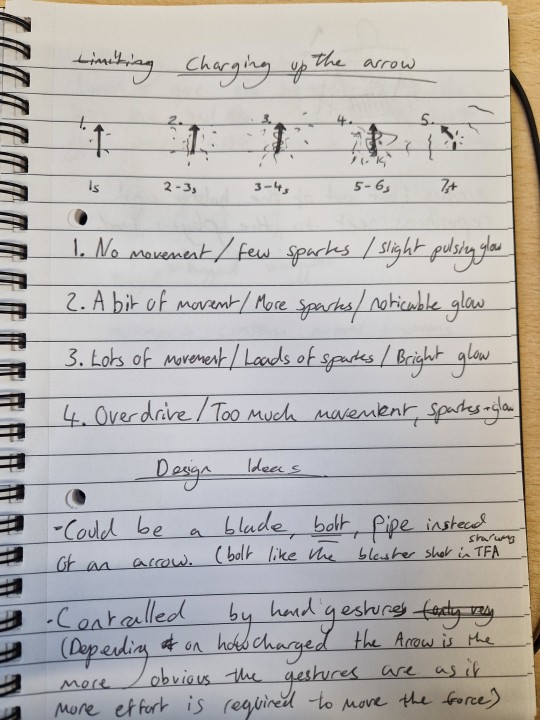 Limiting Charging up the arrow
1. 2. 3. 4. 5.
1s 2-3s 3-4s 5-6s 7s+
1. No movement / few sparks / slight pulsing glow
2. A bit of movemt / More sparks / noticable glow
3. Lots of movement / Loads of sparks / Bright glow
4. Overdrive / Too much movement, sparks + glow
Design Ideas
- Could be a blade, bolt, pipe instead
of an arrow. (bolt like the blaster shot in star wars TFA
- Controlled by hand gestures (only very
(Depending on how charged the Arrow is the
more obvious the gestures are as if
more effort is required to move the force)